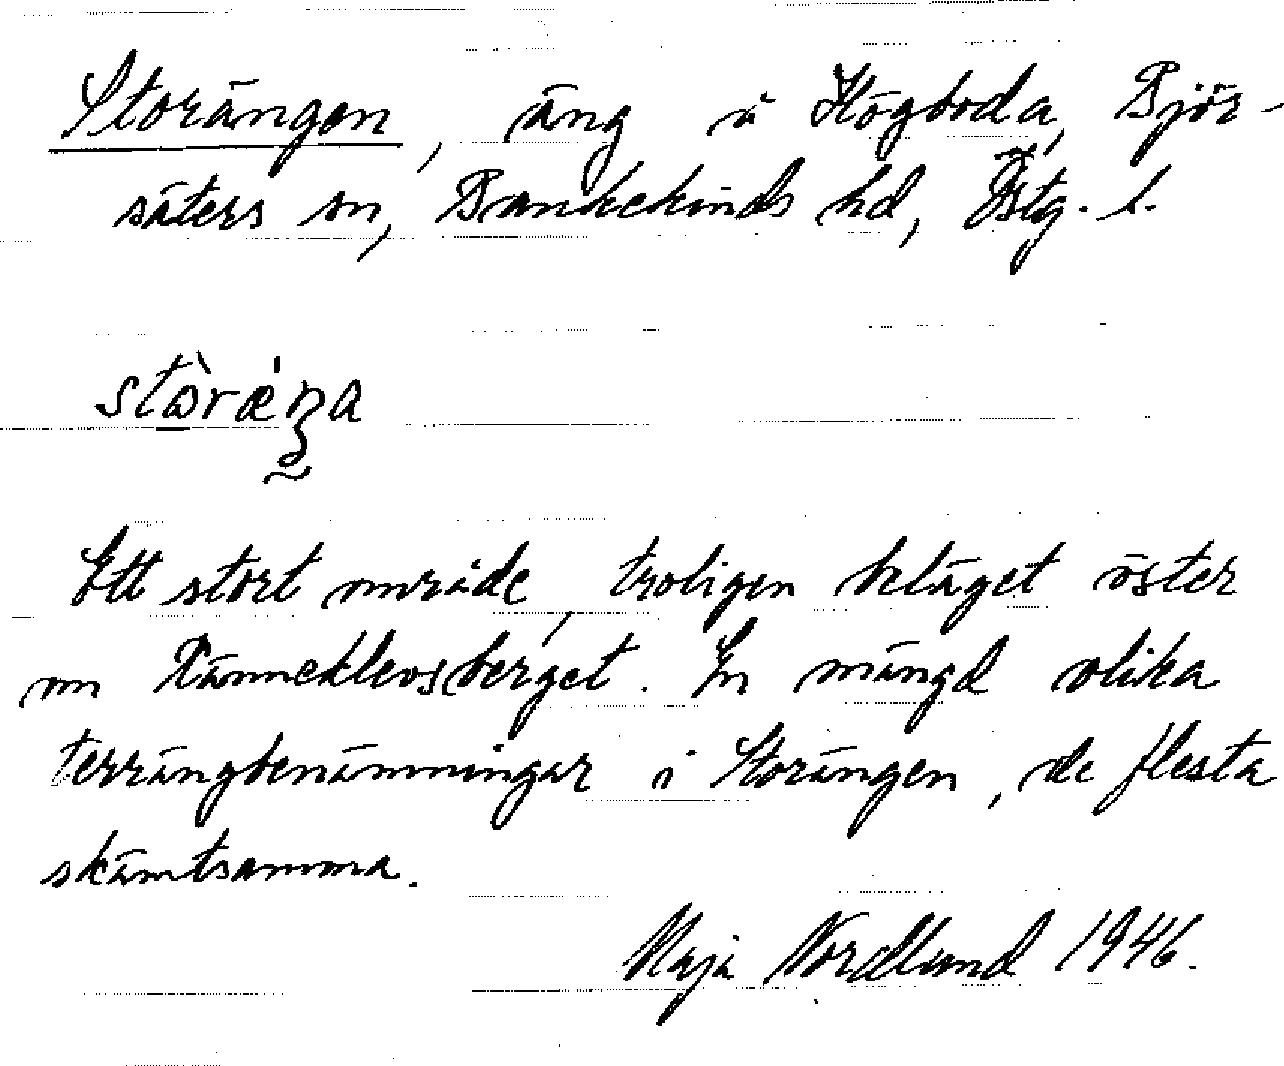 Storängen, äng i Högboda, Björ-
säters sn, Bankekinds hd, Östg. l.
Ett stort område, troligen beläget öster
om Kännecklevsberget. En mängd olika
terrängbenämningar i Storängen, de flesta
skämtsamma.
Maja Nordlund 1946.